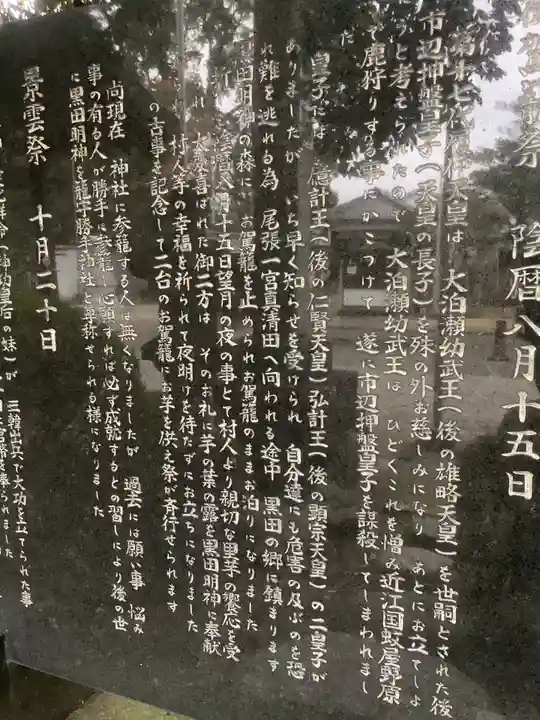 御駕籠祭　陰暦八月十五日
第廿七代雄略天皇は　大泊瀬幼武王（後の雄略天皇）を世嗣とされた後
市辺押盤皇子（天皇の長子）を殊の外お慈しみになり　あとにお立てしよ
うと考えられたので　大泊瀬幼武王は　ひどくこれを憎み近江国蚊屋野原
で鹿狩りする事にかこつけて　遂に市辺押盤皇子を謀殺してしまわれまし
だ
皇子には　億計王（後の仁賢天皇）弘計王（後の顕宗天皇）の二皇子が
ありましたが　いち早く知らせを受けられ　自分達にも危害の及ぶのを恐
れ難を逃れる為　尾張一宮真清田へ向われる途中　黒田の郷に鎮まります
黒田明神の森に　お駕籠を止められお駕籠のままお泊りになりました
折　陰暦八月十五日望月の夜の事とて村人より親切な里芋の饗応を受
れ　大変喜ばれた御二方は　そのお礼に芋の葉の露を黒田明神に奉献
られ　村人等の幸福を祈られて夜明けを待たずにお立ちになりました
の古事を記念して二台のお駕籠にお芋を供え祭が斉行せられます
尚現在　神社に参籠する人は無くなりましたが　過去には願い事　悩み
事の有る人が勝手に参籠し心願すれば必ず成就するとの習しにより後の世
に黒田明神を籠守勝手神社と尊称せられる様になりました
景雲祭　十月二十日
（神功皇后の妹）が　三韓出兵で大功を立てられた事